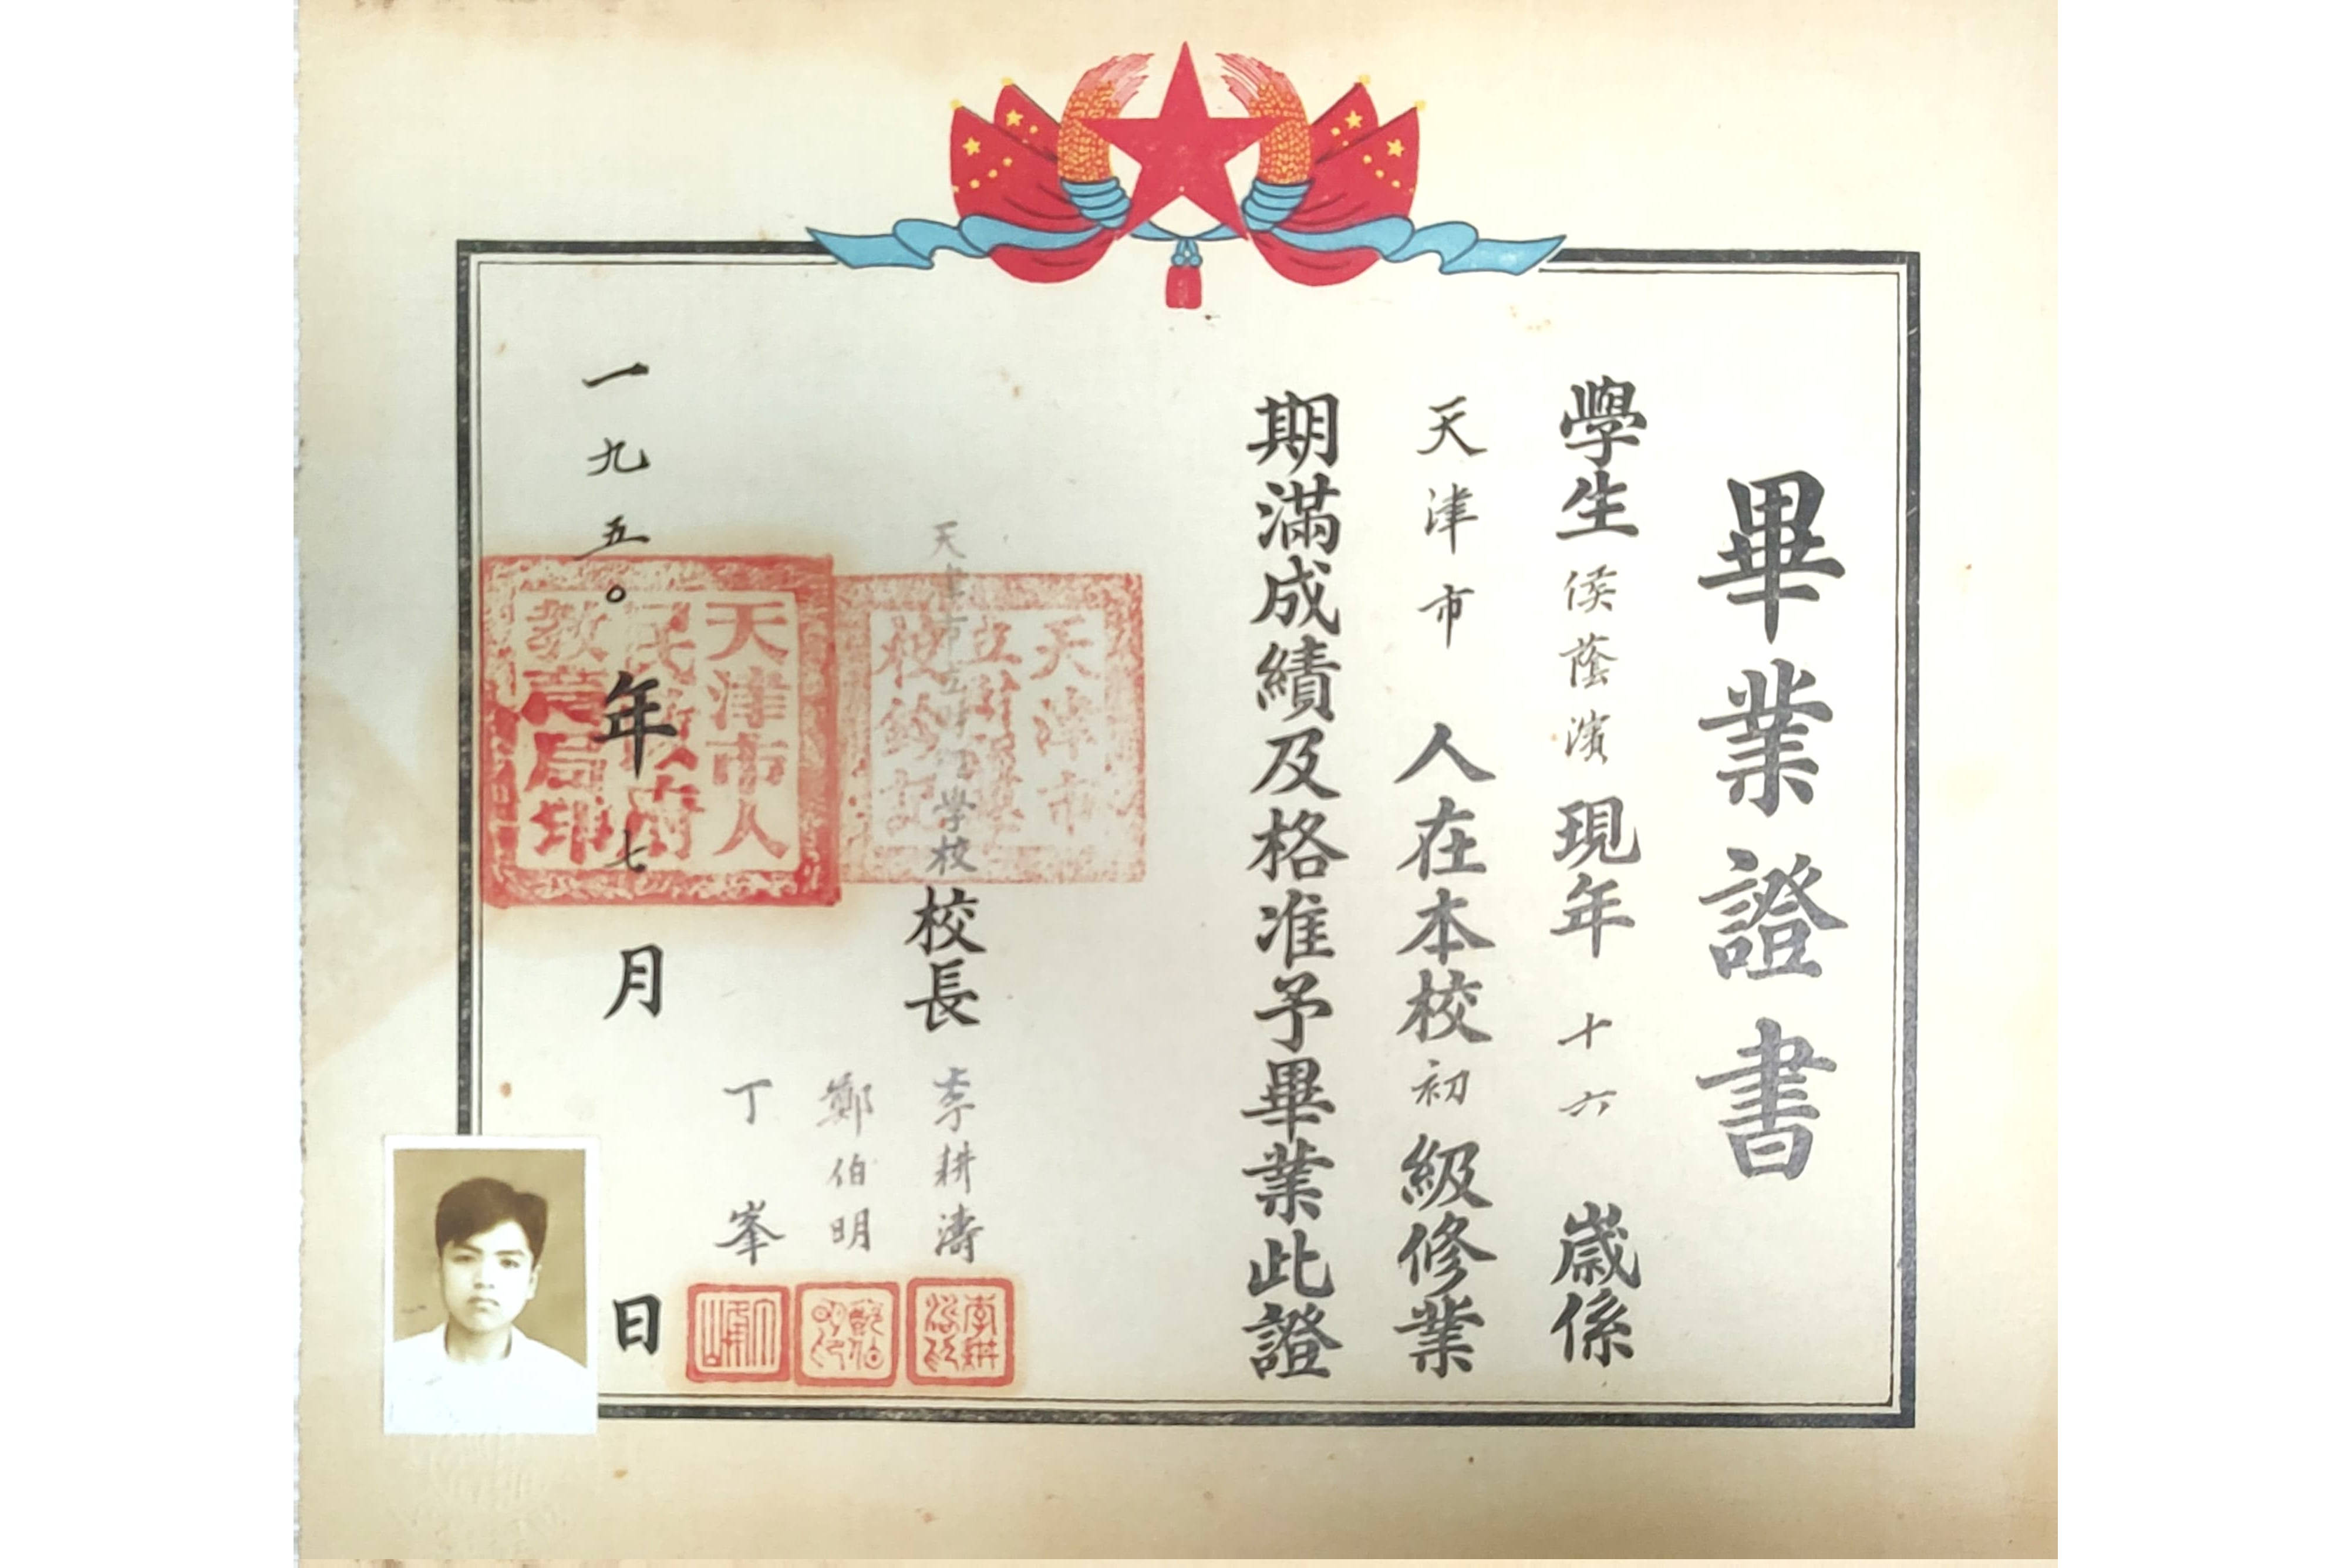 畢業證書
學生侯蔭濱現年十六歲係
天津市人在本校初級修業
期滿成績及格准予畢業此證
天津市立中學校校長李耕濤
鄭伯明
丁峯
一九五〇年七月日
天津市人民政府教育局印
天津市立中學校鈐記